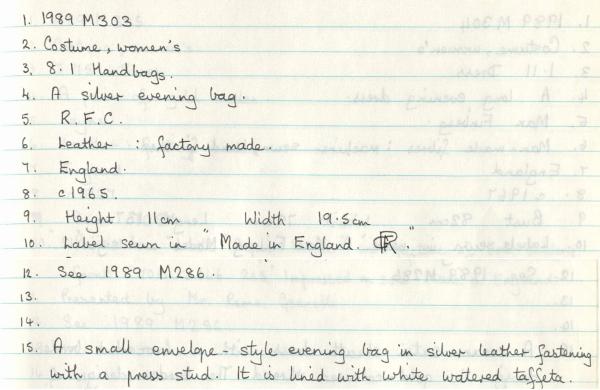 1. 1989 M303
2. Costume, women's
3. 8.1 Handbags.
4. A silver evening bag.
5. R.F.C.
6. Leather : factory made.
7. England.
8. c1965.
9. Height 11cm Width 19.5cm
10. Label sewn in "Made in England. "
12. See 1989 M286.
13.
14.
15. A small envelope-style evening bag in silver leather fastening
with a press stud. It is lined with white watered taffeta.